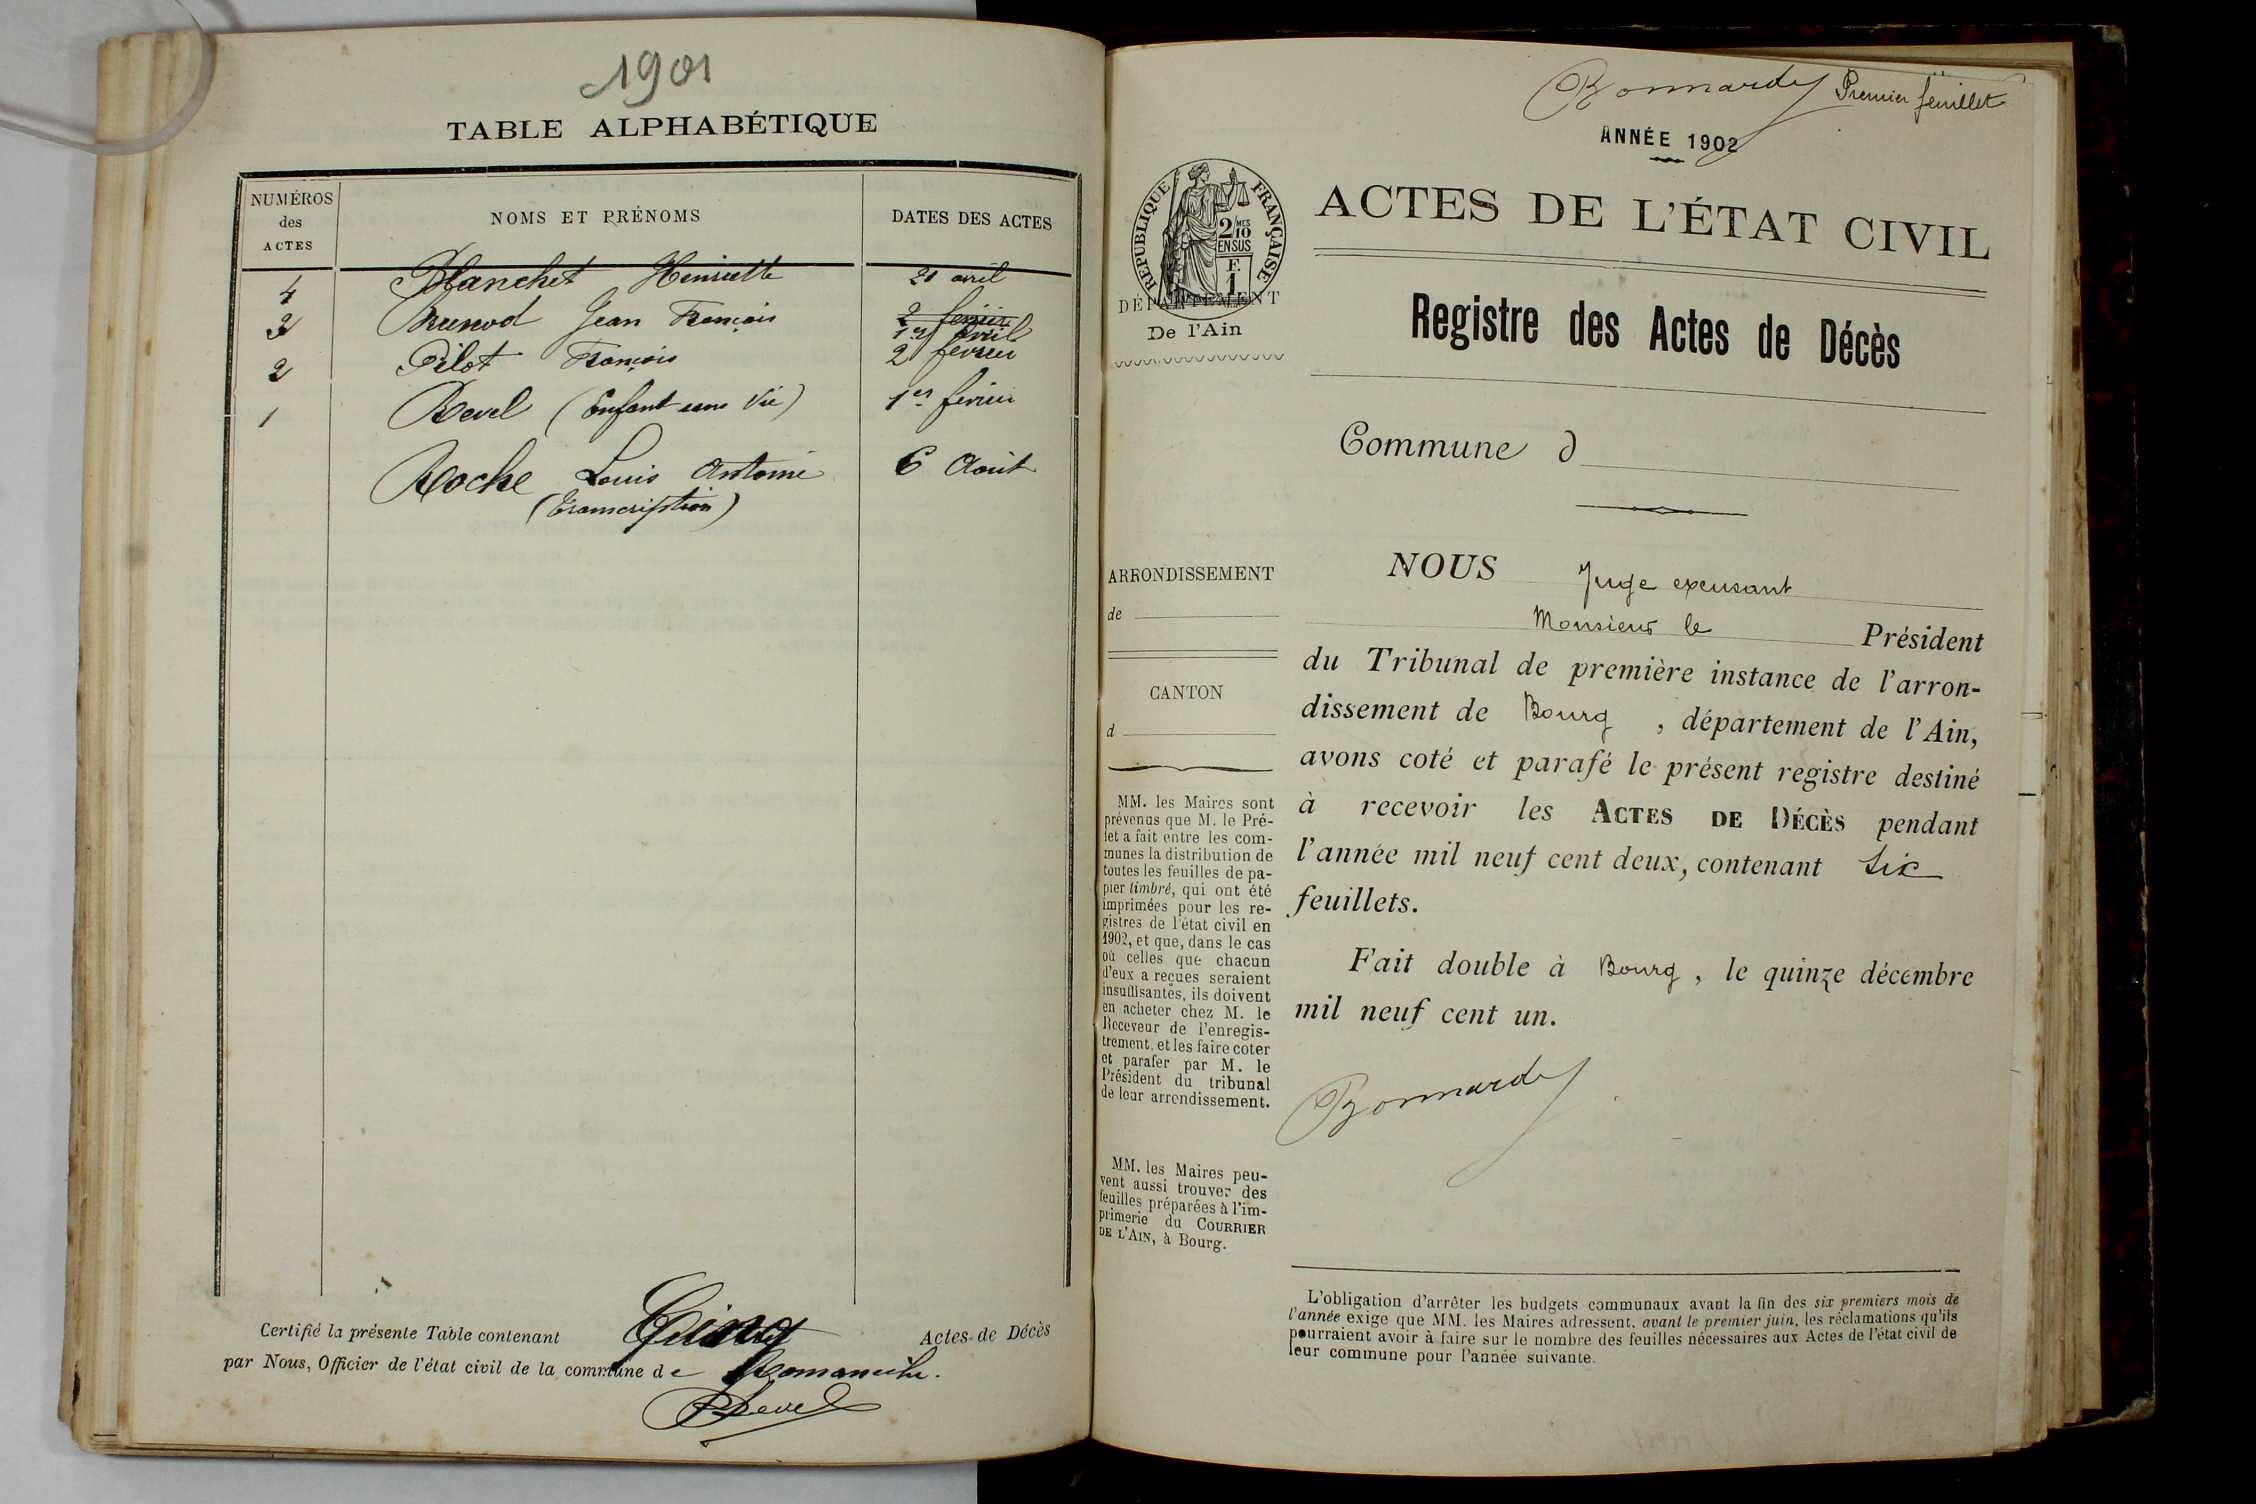 1901
TABLE ALPHABÉTIQUE
NUMÉROS des ACTES NOMS ET PRÉNOMS DATES DES ACTES
4 Blanchet Henriette 21 avril
3 Brunod Jean François 2 février
1er avril
2 Pilot François 2 février
1 Revel (Enfant sans vie) 1er février
Roche Louis Antoine 6 Août
(Transcription)
Certifié la présente Table contenant Cinq Actes de Décès
par Nous, Officier de l'état civil de la commune de Romanèche.
Revel
Bonnardy Premier feuillet
ANNÉE 1902
RÉPUBLIQUE FRANÇAISE
2/MES
10
EN SUS
F.
1
DÉPARTEMENT
De l'Ain
ACTES DE L'ÉTAT CIVIL
Registre des Actes de Décès
Commune d
ARRONDISSEMENT
de
CANTON
d
MM. les Maires sont
prévenus que M. le Pré-
fet a fait entre les com-
munes la distribution de
toutes les feuilles de pa-
pier timbré, qui ont été
imprimées pour les re-
gistres de l'état civil en
1902, et que, dans le cas
où celles que chacun
d'eux a reçues seraient
insuffisantes, ils doivent
en acheter chez M. le
Receveur de l'enregis-
trement, et les faire coter
et parafer par M. le
Président du tribunal
de leur arrondissement.
MM. les Maires peu-
vent aussi trouver des
feuilles préparées à l'im-
primerie du COURRIER
DE L'AIN, à Bourg.
NOUS Juge excusant
Monsieur le Président
du Tribunal de première instance de l'arron-
dissement de Bourg , département de l'Ain,
avons coté et parafé le présent registre destiné
à recevoir les ACTES DE DÉCÈS pendant
l'année mil neuf cent deux, contenant six
feuillets.
Fait double à Bourg , le quinze décembre
mil neuf cent un.
Bonnardy
L'obligation d'arrêter les budgets communaux avant la fin des six premiers mois de
l'année exige que MM. les Maires adressent, avant le premier juin, les réclamations qu'ils
pourraient avoir à faire sur le nombre des feuilles nécessaires aux Actes de l'état civil de
leur commune pour l'année suivante.